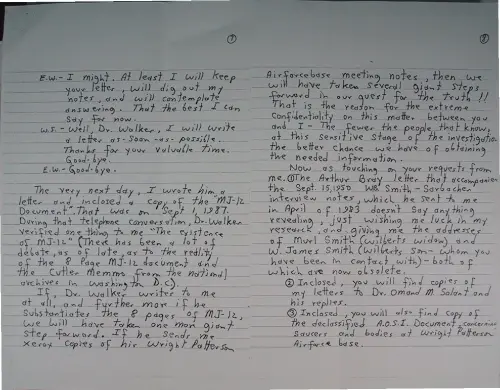 7
E.W.- I might. At least I will keep
your letter, will dig out my
notes, and will contemplate
answering. That the best I can
say for now.
W.S.- Well, Dr. Walker, I will write
a letter as-soon-as-possible.
Thanks for your valuable time.
Good-bye.
E.W.- Good-bye.
The very next day, I wrote him a
letter and inclosed a copy of the "MJ-12
Document". That was on Sept 1, 1987.
During that telephone conversation, Dr. Walker
verified one thing to me "The existence
of MJ-12" (There has been a lot of
debate, as of late, as to the reality
of the 8 Page MJ-12 document and
the Cutler Memmo from the national
archives in Washington D.C).
If, Dr. Walker writes to me
at all, and further more if he
Substantiates the 8 pages of MJ-12,
we will have taken one more giant
Step forward. If he sends me
xerox copies of his Wright Patterson
8
Airforcebase meeting notes, then we
will have taken several giant steps
forward in our quest for the truth!!
That is the reason for the extreme
Confidentiality on this matter between you
and I - The fewer the people that know,
at this Sensitive Stage of the investigation
the better chance we have of obtaining
the needed information.
Now as touching on your requests from
me. ① The Arthur Bray letter that accompanied
the Sept. 15, 1950 WB Smith - Sarbacher
interview notes, which he sent to me
in April of 1983 doesnt Say anything
revealing, just wishing me luck in my
research, and giving me the addresses
of Murl Smith (Wilberts widow) and
W. James Smith (Wilberts Son - whom you
have been in contact with) - both of
which are now obsolete.
② Inclosed, you will find copies of
my letters to Dr. Omond M. Solant and
his replies.
③ Inclosed, you will also find copy of
the declassified A.O.S.I. Document, concerning
saucers and bodies at Wright Patterson
Airforce base.